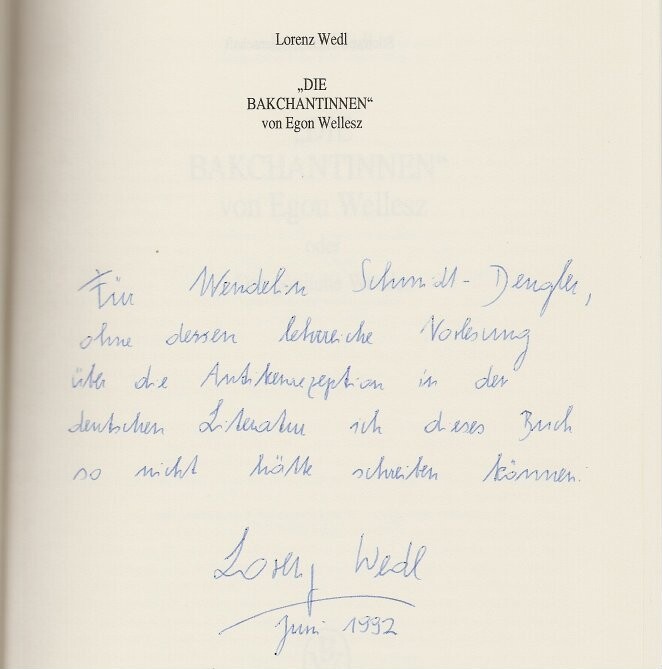 Lorenz Wedl
„DIE
BAKCHANTINNEN“
von Egon Wellesz
BAKCHANTINNEN“
von Egon Wellesz
oder
Für Wendelin Schmidt-Dengler,
ohne dessen lehrreiche Vorlesung
über die Antikenrezeption in der
deutschen Literatur ich dieses Buch
so nicht hätte schreiben können.
Lorenz Wedl
Juni 1992